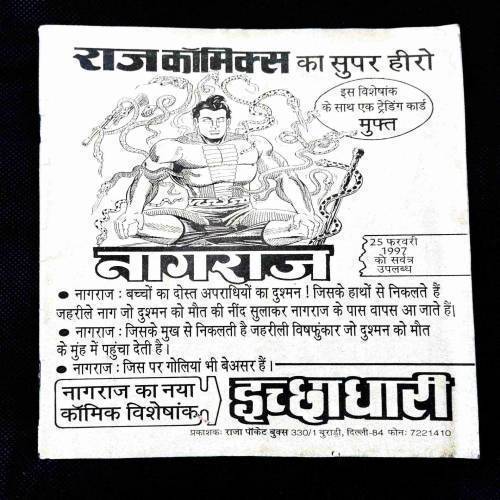 राज कॉमिक्स का सुपर हीरो
इस विशेषांक
के साथ एक ट्रेडिंग कार्ड
मुफ्त
नागराज
25 फरवरी
1997
को सर्वत्र
उपलब्ध
● नागराज : बच्चों का दोस्त अपराधियों का दुश्मन ! जिसके हाथों से निकलते हैं
जहरीले नाग जो दुश्मन को मौत की नींद सुलाकर नागराज के पास वापस आ जाते हैं।
● नागराज : जिसके मुख से निकलती है जहरीली विषफुंकार जो दुश्मन को मौत
के मुंह में पहुंचा देती है।
● नागराज : जिस पर गोलियां भी बेअसर हैं।
नागराज का नया
कॉमिक विशेषांक
इच्छाधारी
प्रकाशकः राजा पॉकेट बुक्स 330/1 बुराड़ी, दिल्ली-84 फोनः 7221410